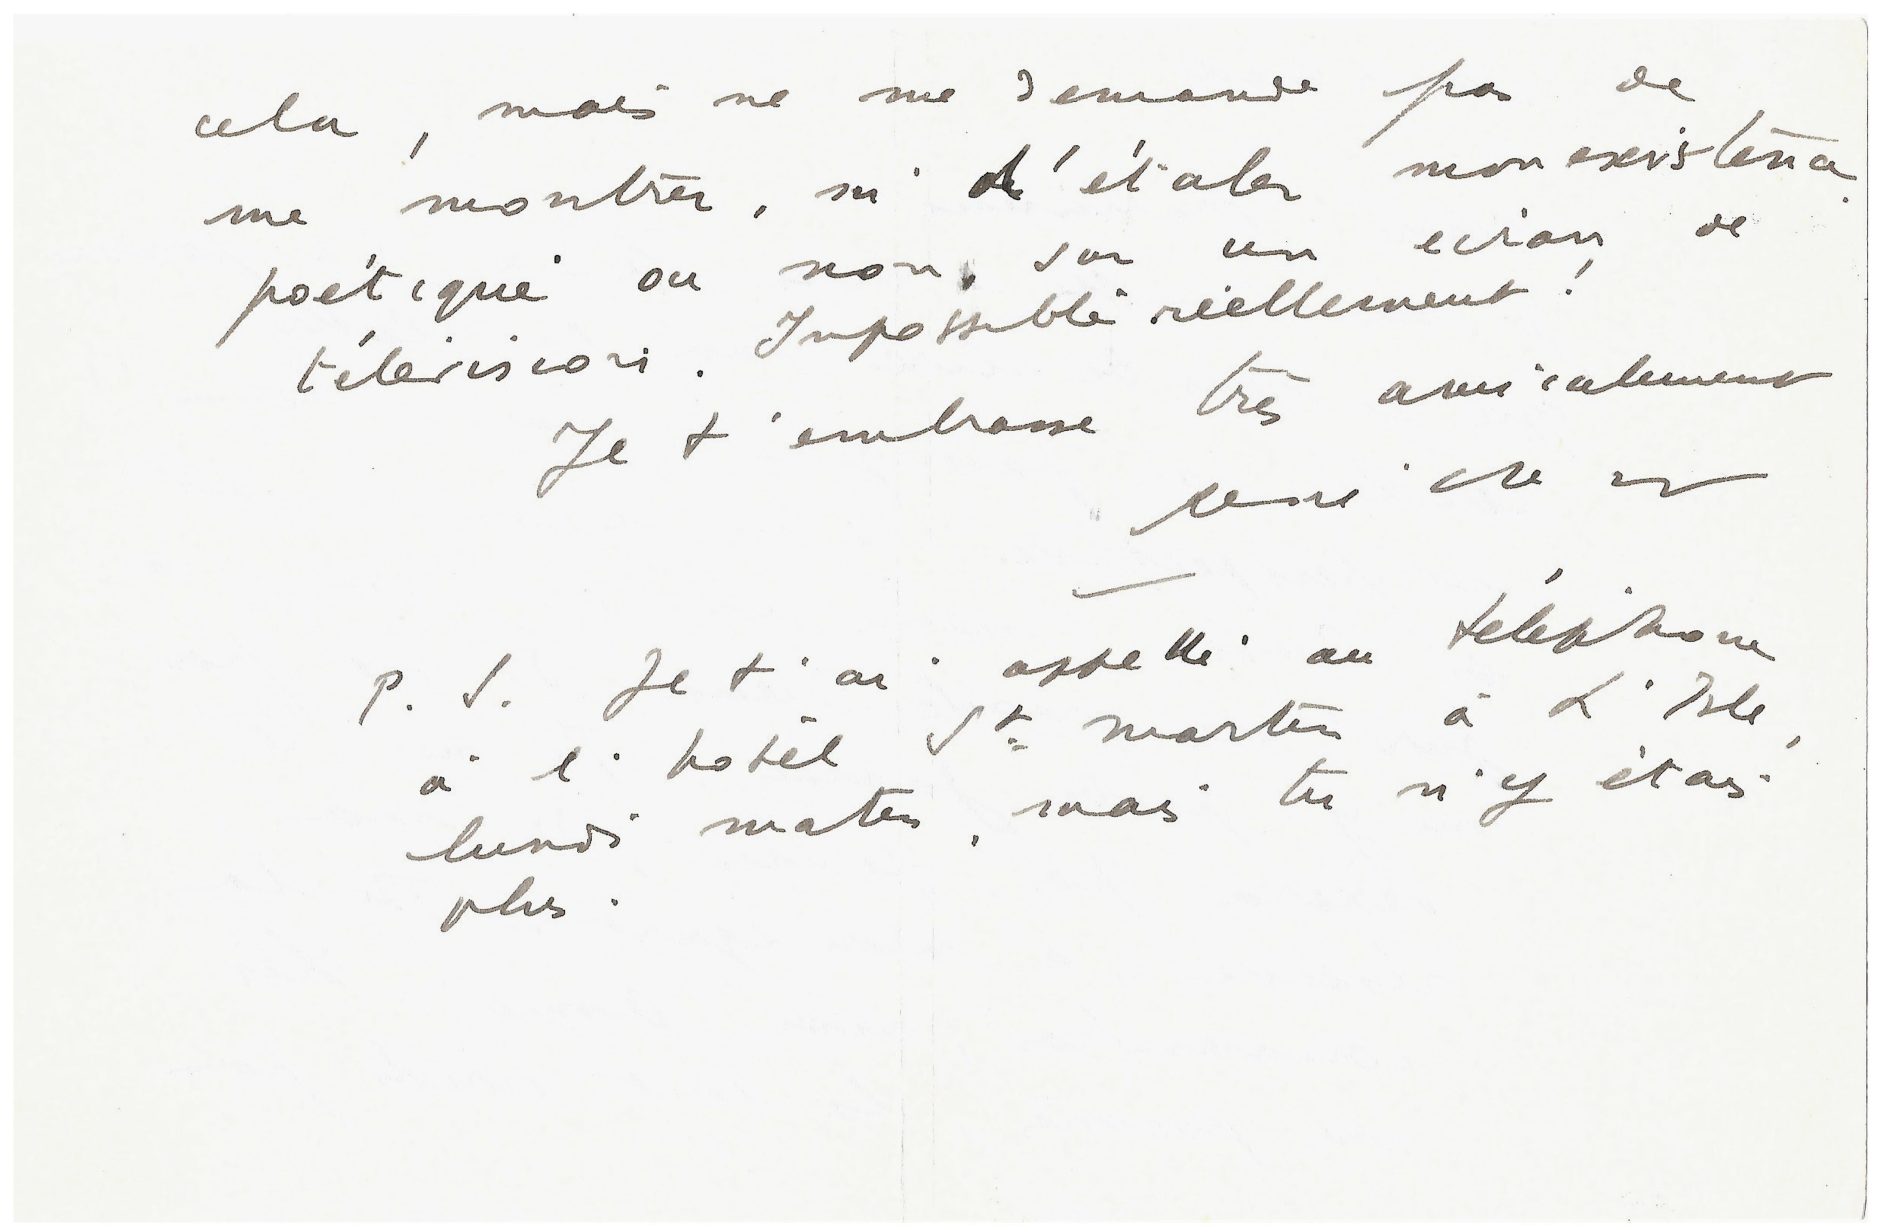 cela, mais ne me demande pas de
me montrer, ni d'étaler mon existence
poétique ou non, sur un écran de
télévision. Impossible réellement !
Je t'embrasse très amicalement
René Char
P. S. Je t'ai appelé au téléphone
à l'hôtel St Martin à L'Isle,
lundi matin, mais tu n'y étais
plus.